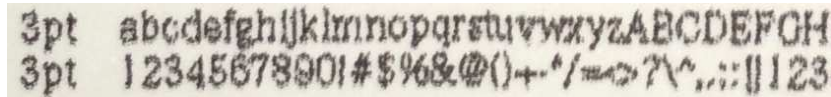 3pt abcdefghijklmnopqrstuvwxyzABCDEFGH
3pt 1234567890!#$%&@()+-*/=<>?\^,.;:[]123